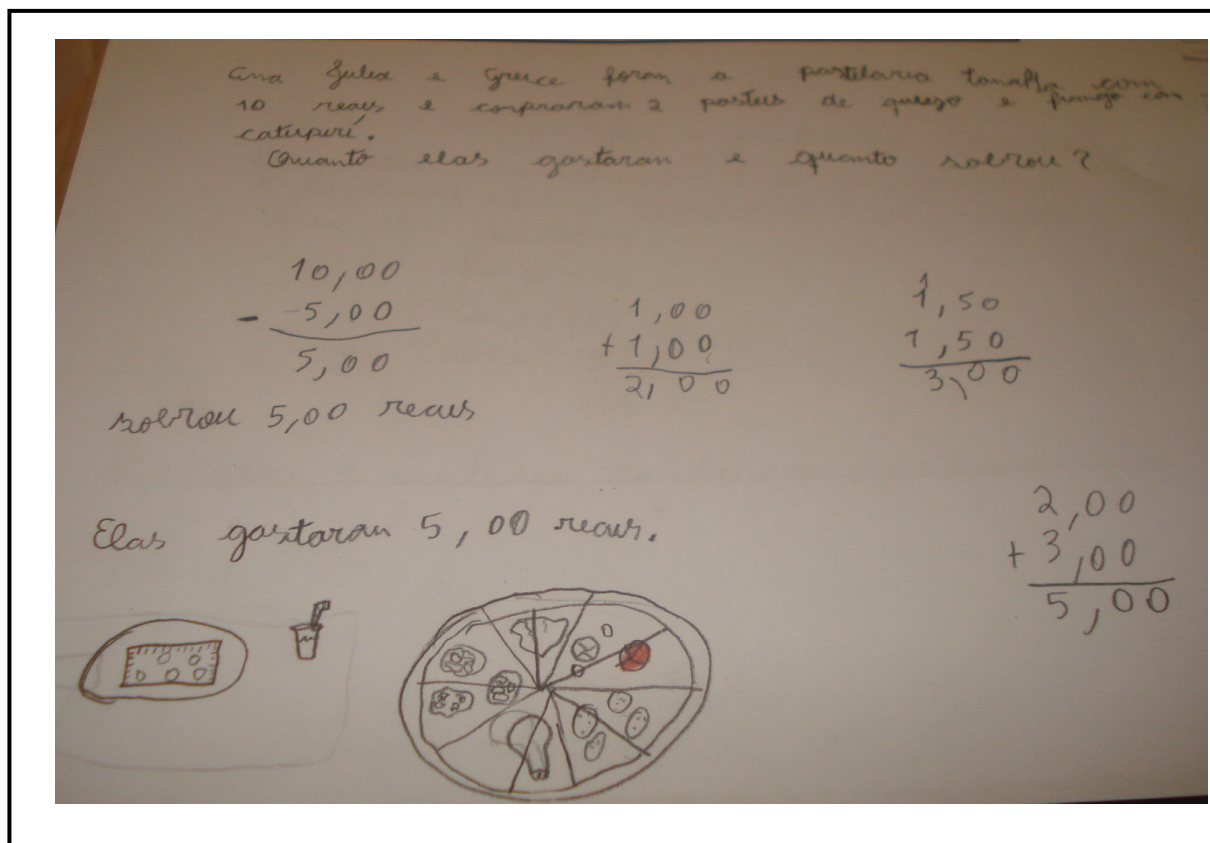 Ana Julia e Greice foran a pastelaria tanaka com
10 reais e conpraram 2 pasteis de queizo e frango com
catupiri.
Quanto elas gastaran e quanto sobrou?
10,00
- -5,00
5,00
1,00
+ 1,00
2,00
1
1,50
1,50
3,00
sobrou 5,00 reais
Elas gastaran 5,00 reais.
2,00
+ 3,00
5,00